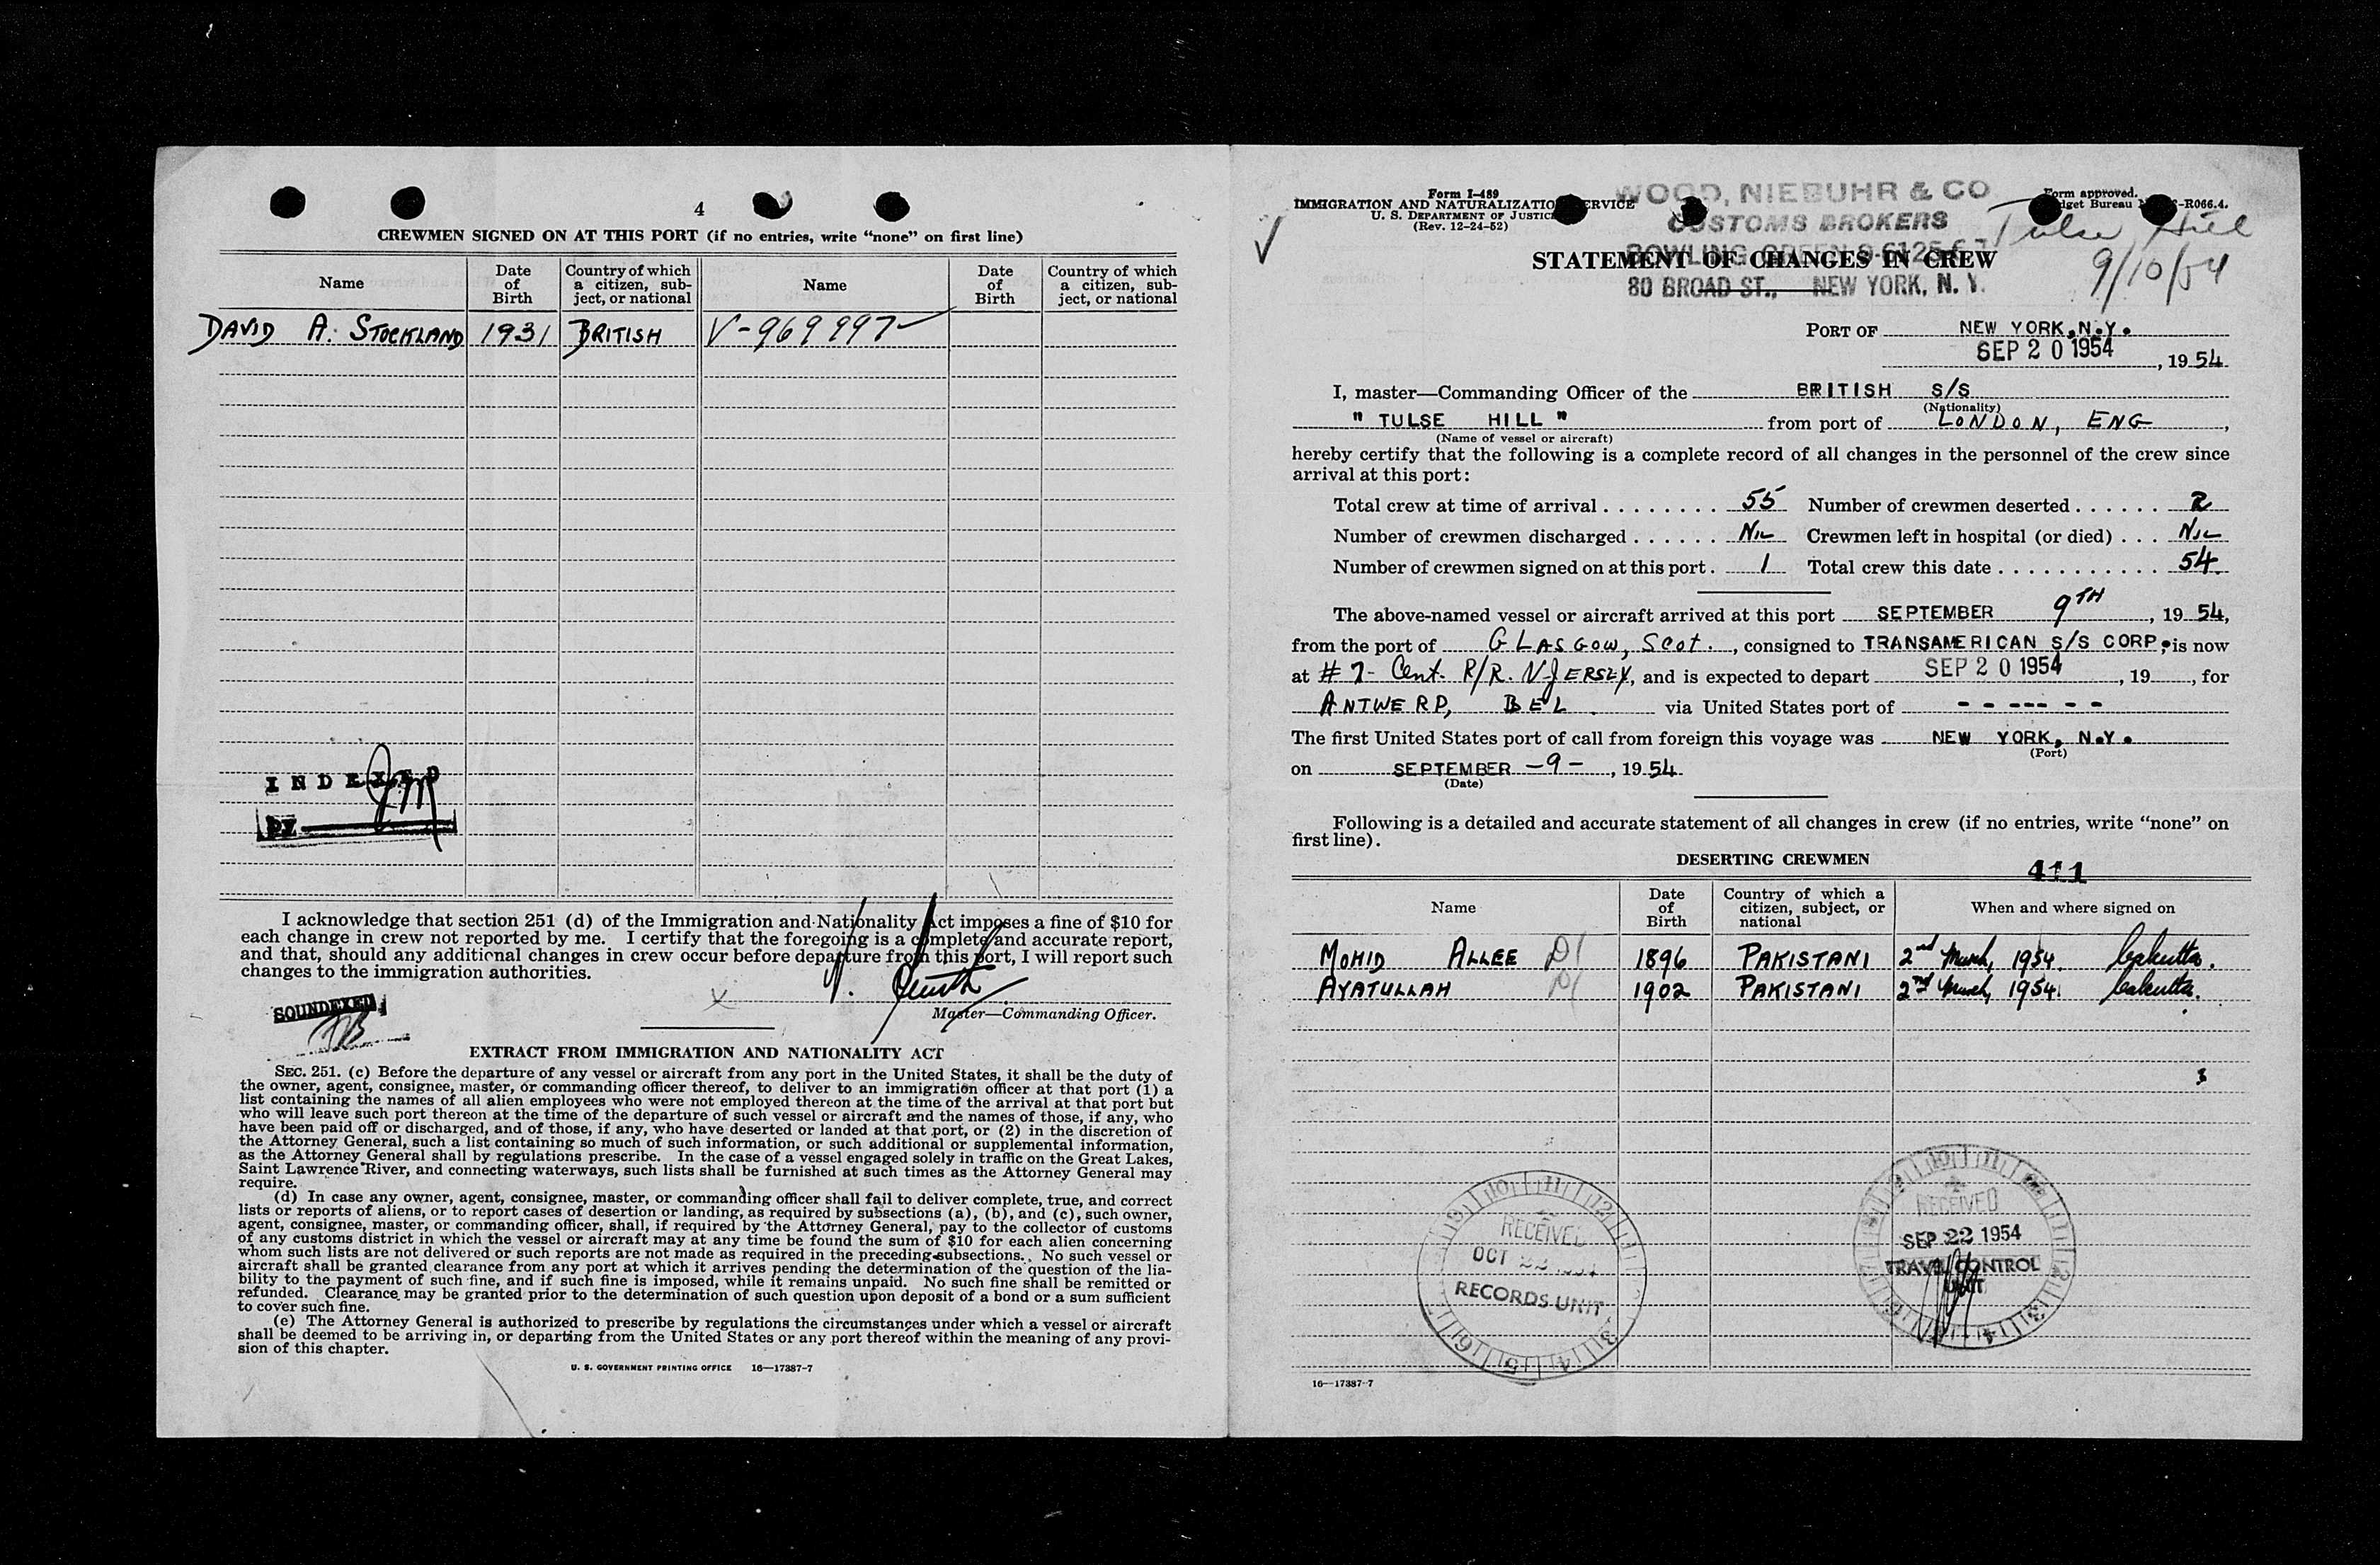 4
CREWMEN SIGNED ON AT THIS PORT (if no entries, write “none” on first line)
Name
Date of Birth
Country of which a citizen, subject, or national
Name
Date of Birth
Country of which a citizen, subject, or national
DAVID A. STOCKLAND 1931 BRITISH V-969997
INDEXED
BY
I acknowledge that section 251 (d) of the Immigration and Nationality Act imposes a fine of $10 for
each change in crew not reported by me. I certify that the foregoing is a complete and accurate report,
and that, should any additional changes in crew occur before departure from this port, I will report such
changes to the immigration authorities.
SOUNDEXED
X
Master—Commanding Officer.
EXTRACT FROM IMMIGRATION AND NATIONALITY ACT
SEC. 251. (c) Before the departure of any vessel or aircraft from any port in the United States, it shall be the duty of
the owner, agent, consignee, master, or commanding officer thereof, to deliver to an immigration officer at that port (1) a
list containing the names of all alien employees who were not employed thereon at the time of the arrival at that port but
who will leave such port thereon at the time of the departure of such vessel or aircraft and the names of those, if any, who
have been paid off or discharged, and of those, if any, who have deserted or landed at that port, or (2) in the discretion of
the Attorney General, such a list containing so much of such information, or such additional or supplemental information,
as the Attorney General shall by regulations prescribe. In the case of a vessel engaged solely in traffic on the Great Lakes,
Saint Lawrence River, and connecting waterways, such lists shall be furnished at such times as the Attorney General may
require.
(d) In case any owner, agent, consignee, master, or commanding officer shall fail to deliver complete, true, and correct
lists or reports of aliens, or to report cases of desertion or landing, as required by subsections (a), (b), and (c), such owner,
agent, consignee, master, or commanding officer, shall, if required by the Attorney General, pay to the collector of customs
of any customs district in which the vessel or aircraft may at any time be found the sum of $10 for each alien concerning
whom such lists are not delivered or such reports are not made as required in the preceding subsections. No such vessel or
aircraft shall be granted clearance from any port at which it arrives pending the determination of the question of the lia-
bility to the payment of such fine, and if such fine is imposed, while it remains unpaid. No such fine shall be remitted or
refunded. Clearance may be granted prior to the determination of such question upon deposit of a bond or a sum sufficient
to cover such fine.
(e) The Attorney General is authorized to prescribe by regulations the circumstances under which a vessel or aircraft
shall be deemed to be arriving in, or departing from the United States or any port thereof within the meaning of any provi-
sion of this chapter.
U. S. GOVERNMENT PRINTING OFFICE 16—17387-7
Form I-489
IMMIGRATION AND NATURALIZATION SERVICE
U. S. DEPARTMENT OF JUSTICE
(Rev. 12-24-52)
WOOD, NIEBUHR & CO
CUSTOMS BROKERS
BOWLING GREEN 9-6125-6-7
80 BROAD ST., NEW YORK, N. Y.
Form approved.
Budget Bureau -R066.4.
Tulse Hill
9/10/54
STATEMENT OF CHANGES IN CREW
PORT OF NEW YORK, N.Y.
SEP 20 1954, 1954
I, master—Commanding Officer of the BRITISH S/S
(Nationality)
" TULSE HILL " from port of LONDON, ENG,
(Name of vessel or aircraft)
hereby certify that the following is a complete record of all changes in the personnel of the crew since
arrival at this port:
Total crew at time of arrival . . . . . . . . 55 Number of crewmen deserted . . . . . . 2
Number of crewmen discharged . . . . . . NIL Crewmen left in hospital (or died) . . . NIL
Number of crewmen signed on at this port . 1 Total crew this date . . . . . . . . . . . . 54
The above-named vessel or aircraft arrived at this port SEPTEMBER 9TH, 1954,
from the port of GLASGOW, SCOT., consigned to TRANSAMERICAN S/S CORP. is now
at # 7- Cent. R/R. N-JERSEY, and is expected to depart SEP 20 1954, 19, for
ANTWERP, BEL. via United States port of - - --- - -
The first United States port of call from foreign this voyage was NEW YORK, N.Y.
(Port)
on SEPTEMBER -9-, 1954
(Date)
Following is a detailed and accurate statement of all changes in crew (if no entries, write “none” on
first line).
DESERTING CREWMEN
411
Name
Date of Birth
Country of which a citizen, subject, or national
When and where signed on
MOHID ALLEE 1896 PAKISTANI 2nd March, 1954. Calcutta.
AYATULLAH 1902 PAKISTANI 2nd March, 1954. Calcutta.
RECEIVED
OCT 22
RECORDS UNIT
RECEIVED
SEP 22 1954
TRAVEL CONTROL
UNIT
16—17387-7